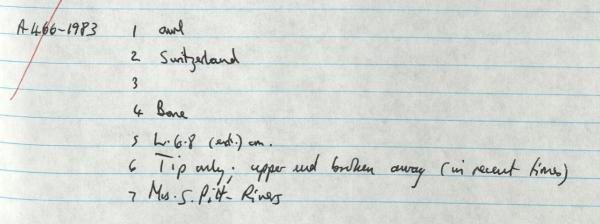 A466-1983 1 awl
2 Switzerland
3
4 Bone
5 L. 6.8 (est.) cm.
6 Tip only; upper end broken away (in recent times)
7 Mrs. S. Pitt-Rivers